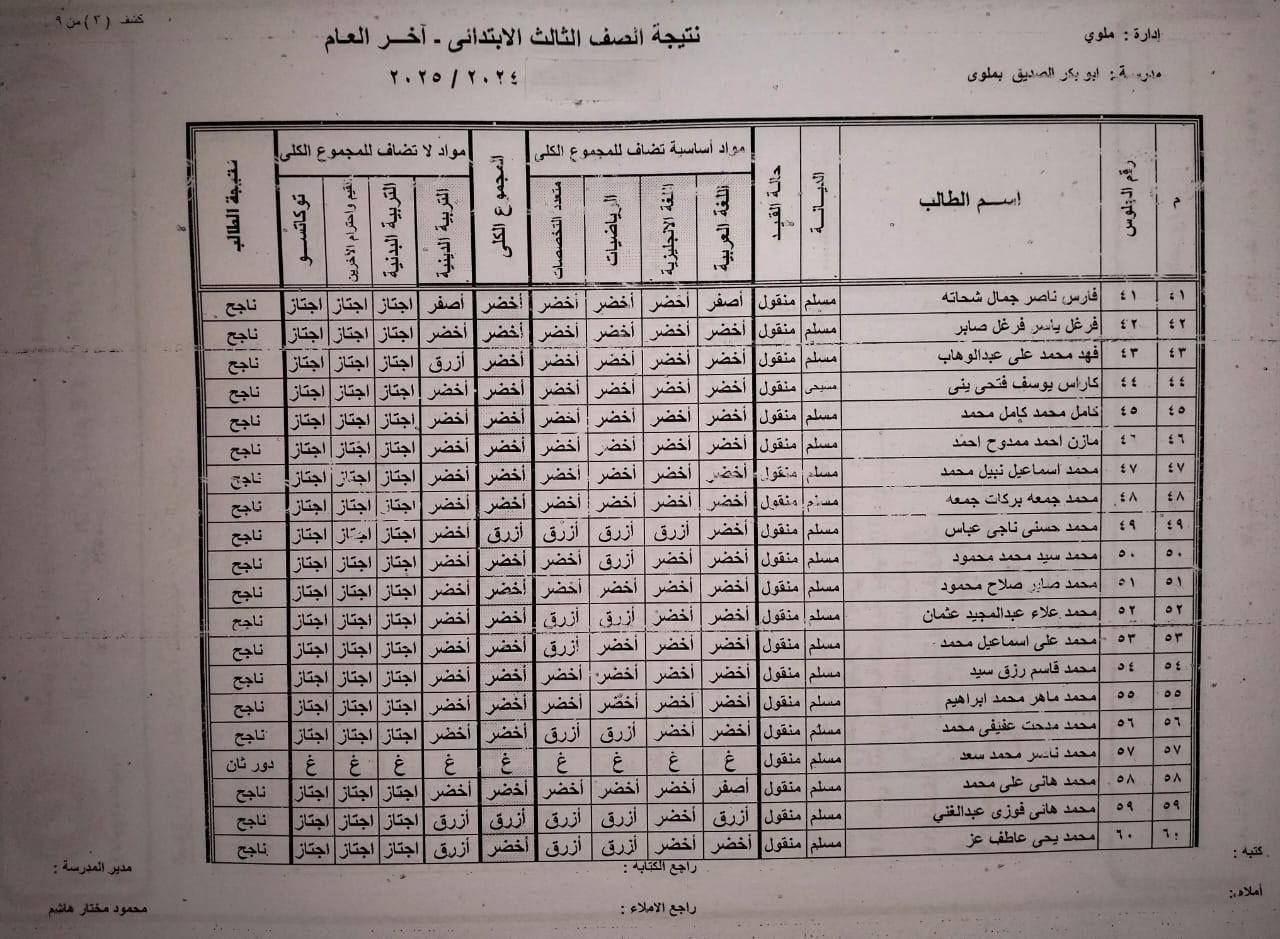 كشف (٣) من ٩
إدارة: ملوي
نتيجة الصف الثالث الابتدائى - آخر العام
مدرسة: ابو بكر الصديق بملوى
٢٠٢٤ / ٢٠٢٥
م رقم الجلوس اسم الطالب الديانة حالة القيد مواد أساسية تضاف للمجموع الكلى المجموع الكلى مواد لا تضاف للمجموع الكلى نتيجة الطالب
اللغة العربية اللغة الانجليزية الرياضيات متعدد التخصصات التربية الدينية التربية البدنية القيم واحترام الآخرين توكاتسو
٤١ ٤١ فارس ناصر جمال شحاته مسلم منقول أصفر أخضر أخضر أخضر أخضر أصفر اجتاز اجتاز اجتاز ناجح
٤٢ ٤٢ فرغل ياسر فرغل صابر مسلم منقول أخضر أخضر أخضر أخضر أخضر أخضر اجتاز اجتاز اجتاز ناجح
٤٣ ٤٣ فهد محمد على عبدالوهاب مسلم منقول أخضر أخضر أخضر أخضر أخضر أزرق اجتاز اجتاز اجتاز ناجح
٤٤ ٤٤ كاراس يوسف فتحى ينى مسيحى منقول أخضر أخضر أخضر أخضر أخضر أخضر اجتاز اجتاز اجتاز ناجح
٤٥ ٤٥ كامل محمد كامل محمد مسلم منقول أخضر أخضر أخضر أخضر أخضر أخضر اجتاز اجتاز اجتاز ناجح
٤٦ ٤٦ مازن احمد ممدوح احمد مسلم منقول أخضر أخضر أخضر أخضر أخضر أخضر اجتاز اجتاز اجتاز ناجح
٤٧ ٤٧ محمد اسماعيل نبيل محمد مسلم منقول أخضر أخضر أخضر أخضر أخضر أخضر اجتاز اجتاز اجتاز ناجح
٤٨ ٤٨ محمد جمعه بركات جمعه مسلم منقول أخضر أخضر أخضر أخضر أخضر أخضر اجتاز اجتاز اجتاز ناجح
٤٩ ٤٩ محمد حسنى ناجى عباس مسلم منقول أخضر أزرق أزرق أزرق أزرق أخضر اجتاز اجتاز اجتاز ناجح
٥٠ ٥٠ محمد سيد محمد محمود مسلم منقول أخضر أخضر أزرق أخضر أخضر أخضر اجتاز اجتاز اجتاز ناجح
٥١ ٥١ محمد صابر صلاح محمود مسلم منقول أخضر أخضر أخضر أخضر أخضر أخضر اجتاز اجتاز اجتاز ناجح
٥٢ ٥٢ محمد علاء عبدالمجيد عثمان مسلم منقول أخضر أخضر أزرق أزرق أخضر أخضر اجتاز اجتاز اجتاز ناجح
٥٣ ٥٣ محمد على اسماعيل محمد مسلم منقول أخضر أخضر أخضر أزرق أخضر أخضر اجتاز اجتاز اجتاز ناجح
٥٤ ٥٤ محمد قاسم رزق سيد مسلم منقول أخضر أخضر أخضر أخضر أخضر أخضر اجتاز اجتاز اجتاز ناجح
٥٥ ٥٥ محمد ماهر محمد ابراهيم مسلم منقول أخضر أخضر أخضر أخضر أخضر أخضر اجتاز اجتاز اجتاز ناجح
٥٦ ٥٦ محمد مدحت عفيفى محمد مسلم منقول أخضر أخضر أزرق أزرق أخضر أخضر اجتاز اجتاز اجتاز ناجح
٥٧ ٥٧ محمد ناصر محمد سعد مسلم منقول غ غ غ غ غ غ غ غ غ دور ثان
٥٨ ٥٨ محمد هانى على محمد مسلم منقول أصفر أخضر أخضر أخضر أخضر أخضر اجتاز اجتاز اجتاز ناجح
٥٩ ٥٩ محمد هانى فوزى عبدالغني مسلم منقول أزرق أخضر أزرق أزرق أزرق أزرق اجتاز اجتاز اجتاز ناجح
٦٠ ٦٠ محمد يحى عاطف عز مسلم منقول أخضر أخضر أزرق أزرق أخضر أزرق اجتاز اجتاز اجتاز ناجح
كتبه: راجع الكتابه: مدير المدرسة:
أملاه: راجع الاملاء: محمود مختار هاشم